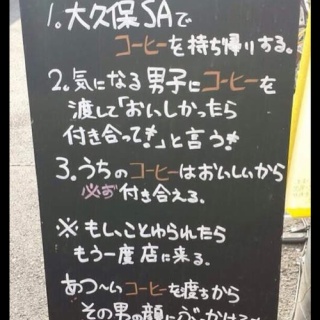 1.大久保SAで
コーヒーを持ち帰りする。
2.気になる男子にコーヒーを
渡して「おいしかったら
付き合って!」と言う!
3.うちのコーヒーはおいしいから
必ず付き合える。
※もし、ことわられたら
もう一度店に来る。
あつ〜いコーヒーを渡すから
その男の顔にぶっかける